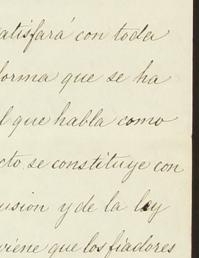 atisfará con toda
forma que se ha
l que habla como
cto, se constituye con
usion y de la ley
viene que los fiadores